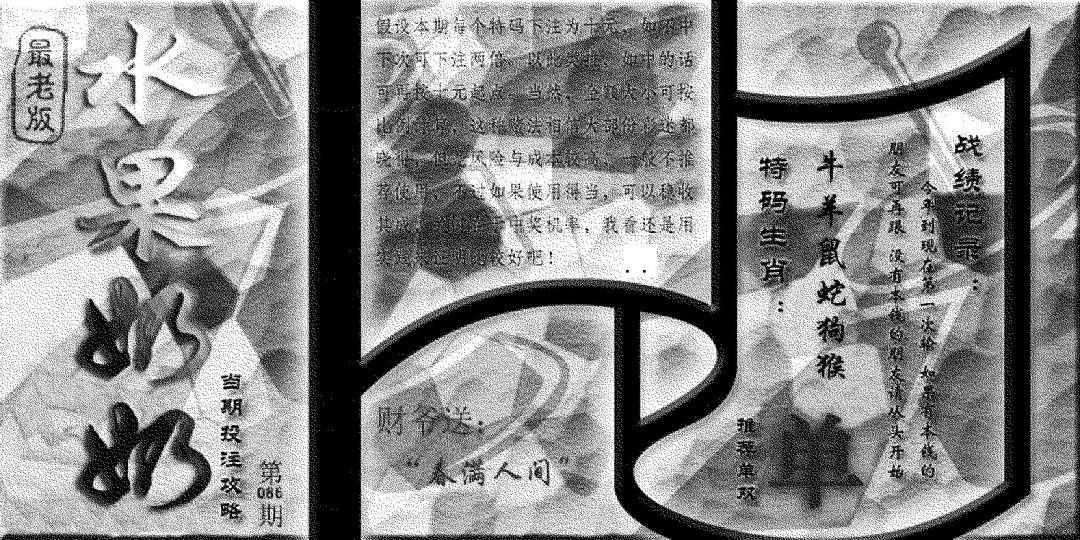 最老版
水果奶奶
当期投注攻略
第086期
假设本期每个特码下注为十元，如不中
下次可下注两倍，以此类推，如中的话
可再按十元起点。当然，金额大小可按
比例
，这种
法相信大部份彩迷都
晓得，但
风险与成本较高，一般不推
荐使用，不过如果使用得当，可以稳收
其成
中奖机率，我看还是用
比较好吧！
财爷送：
“春满人间”
战绩记录：
今年到现在第一次输 如果有本钱的
朋友可再跟 没有本钱的朋友请从头开始
牛羊鼠蛇狗猴
特码生肖：
推荐单双
单